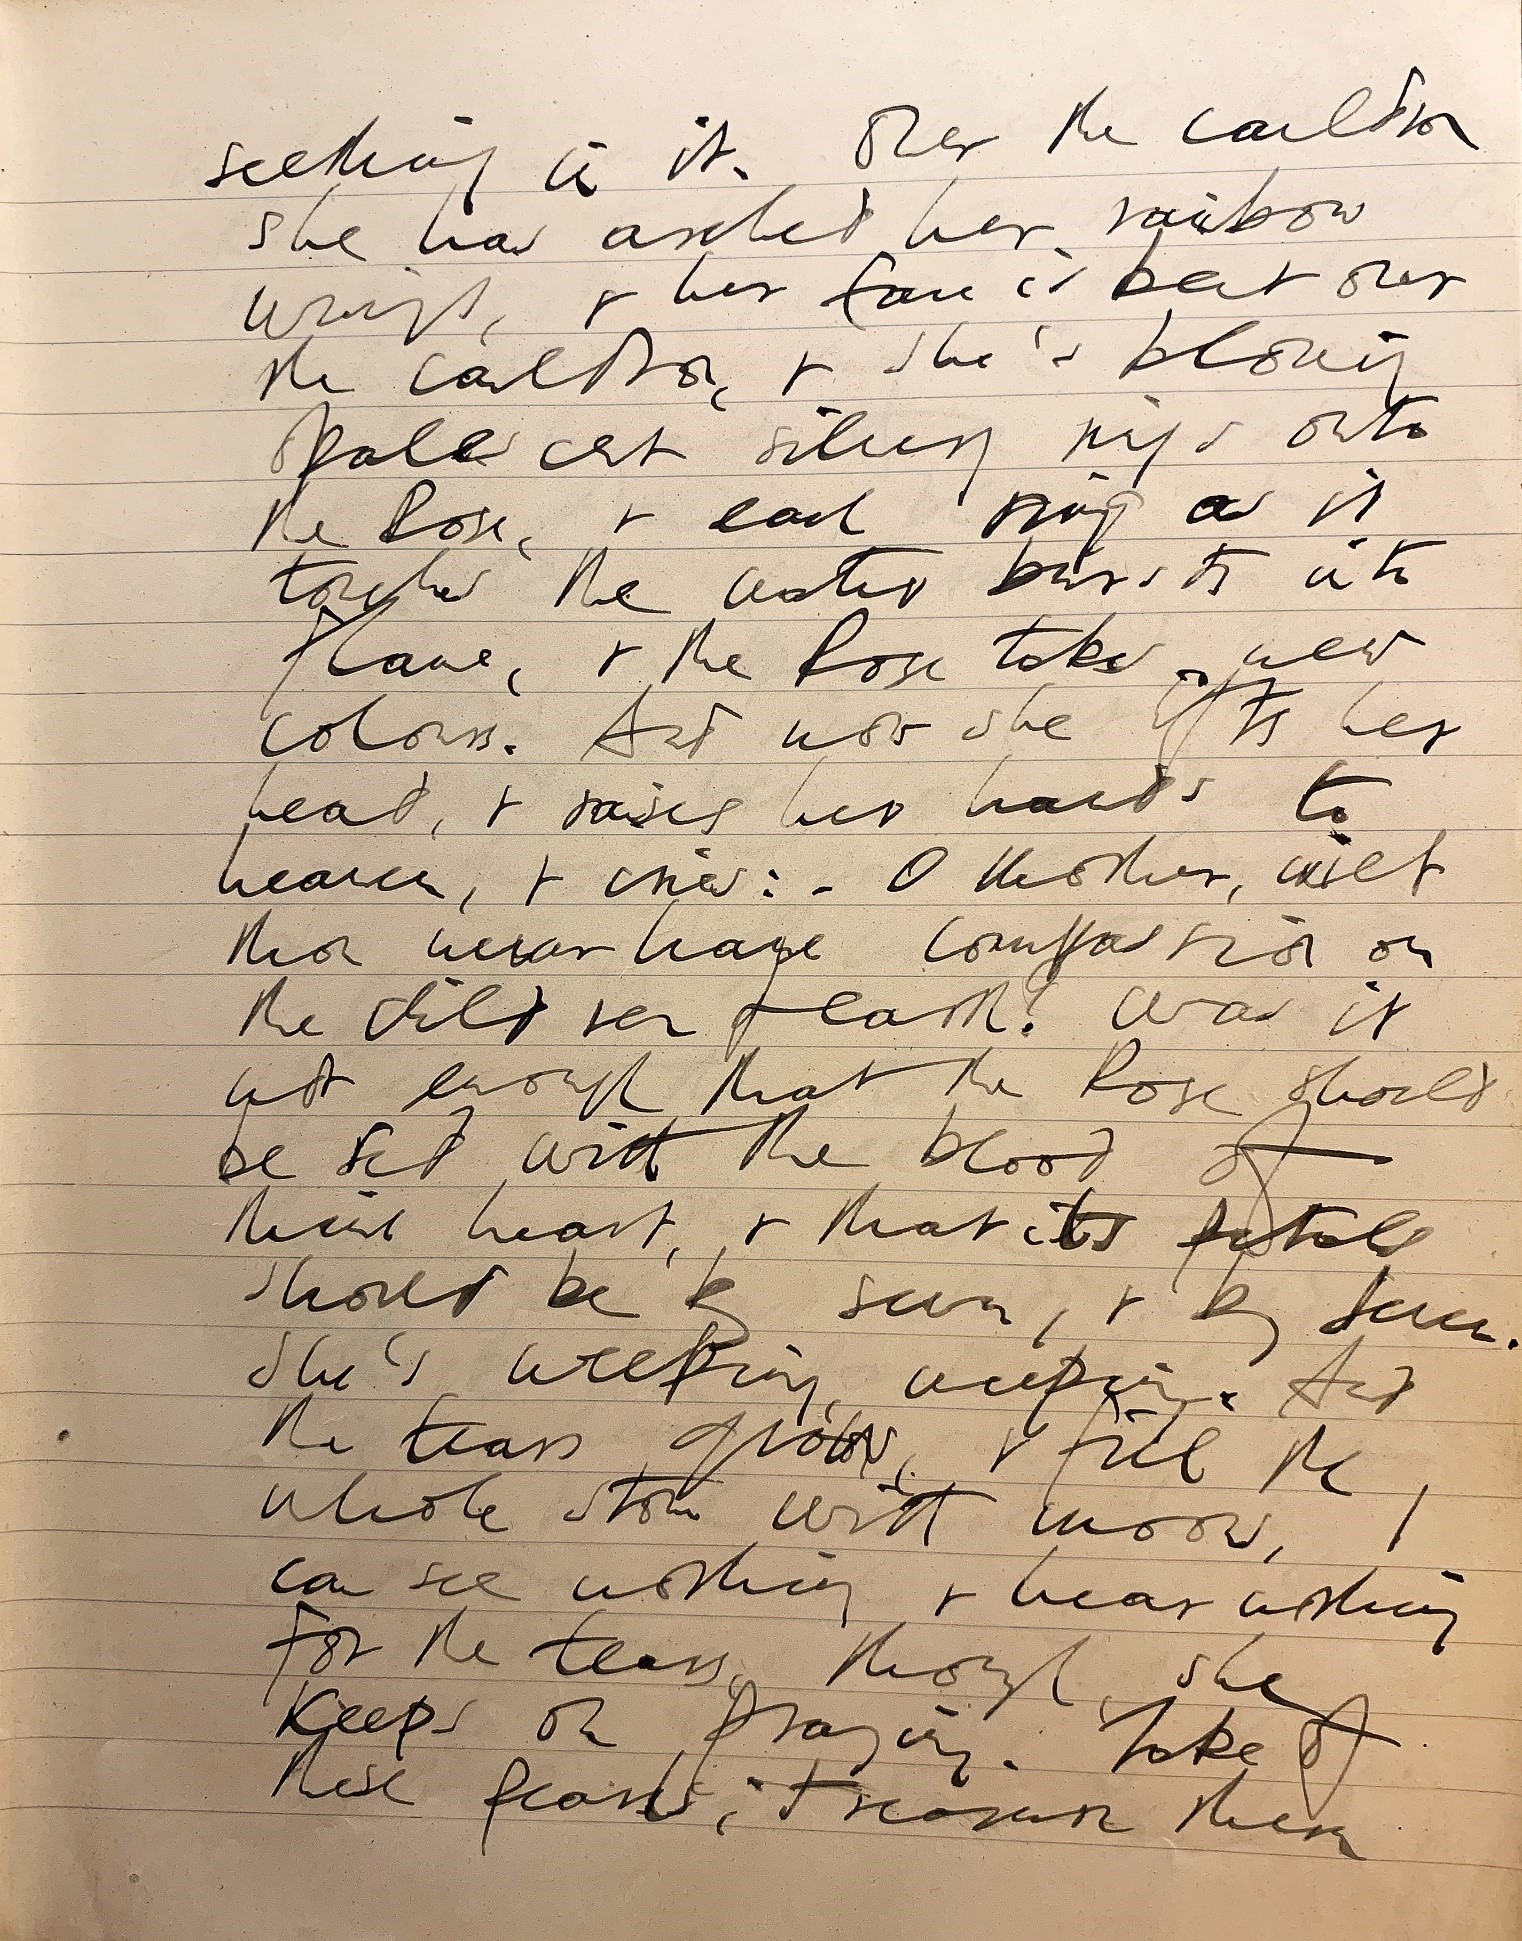 seething in it. Over the cauldron
she has arched her rainbow
wings, & her face is bent over
the cauldron, & she's blowing
opalescent silvery rings onto
the Rose, & each ring as it
touches the water bursts into
flame, & the Rose takes new
colours. And now she lifts her
head, & raises her hands to
heaven, & cries:- O Mother, wilt
thou never have compassion on
the children of earth? Was it
not enough that the Rose should
be red with the blood of
thine heart, & that its petals
should be by seven, & by seven.
She's weeping, weeping. And
the tears grow, & fill the
whole stone with moons, I
can see nothing & hear nothing
for the tears, though she
keeps on praying. Take of
these pearls, treasure them